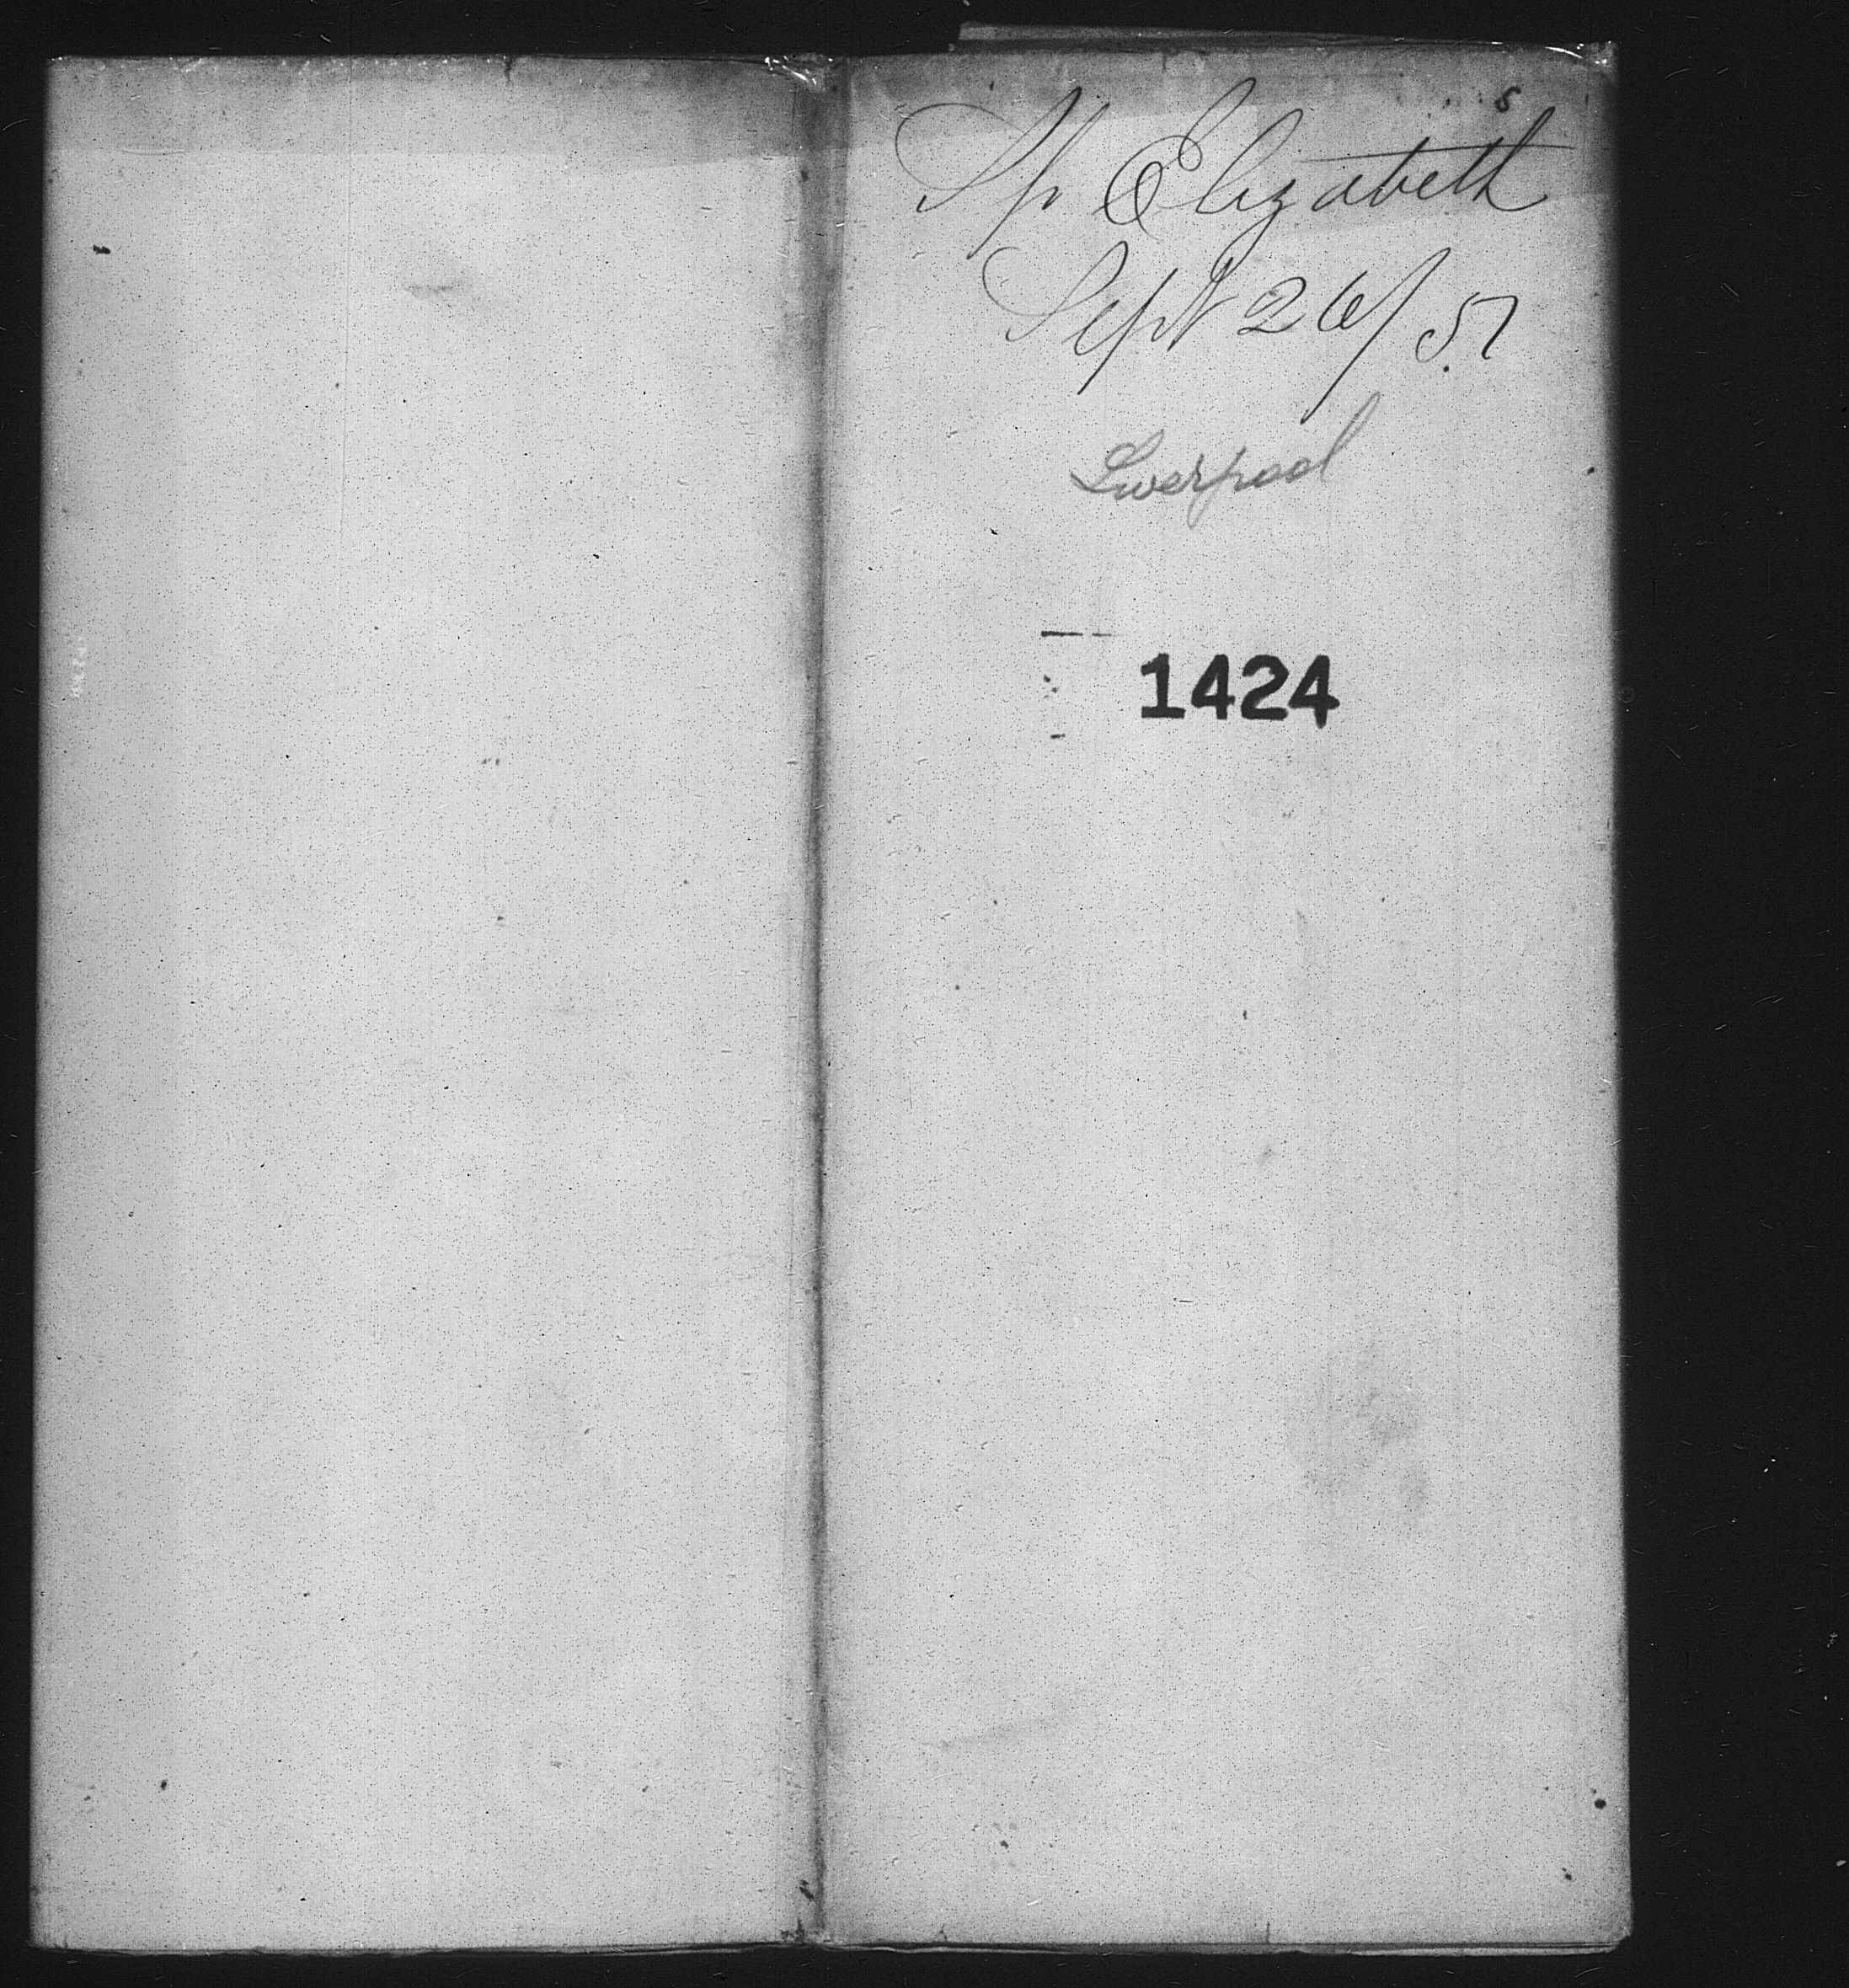 Sp Elizabeth
Sept 26/57
Liverpool
1424